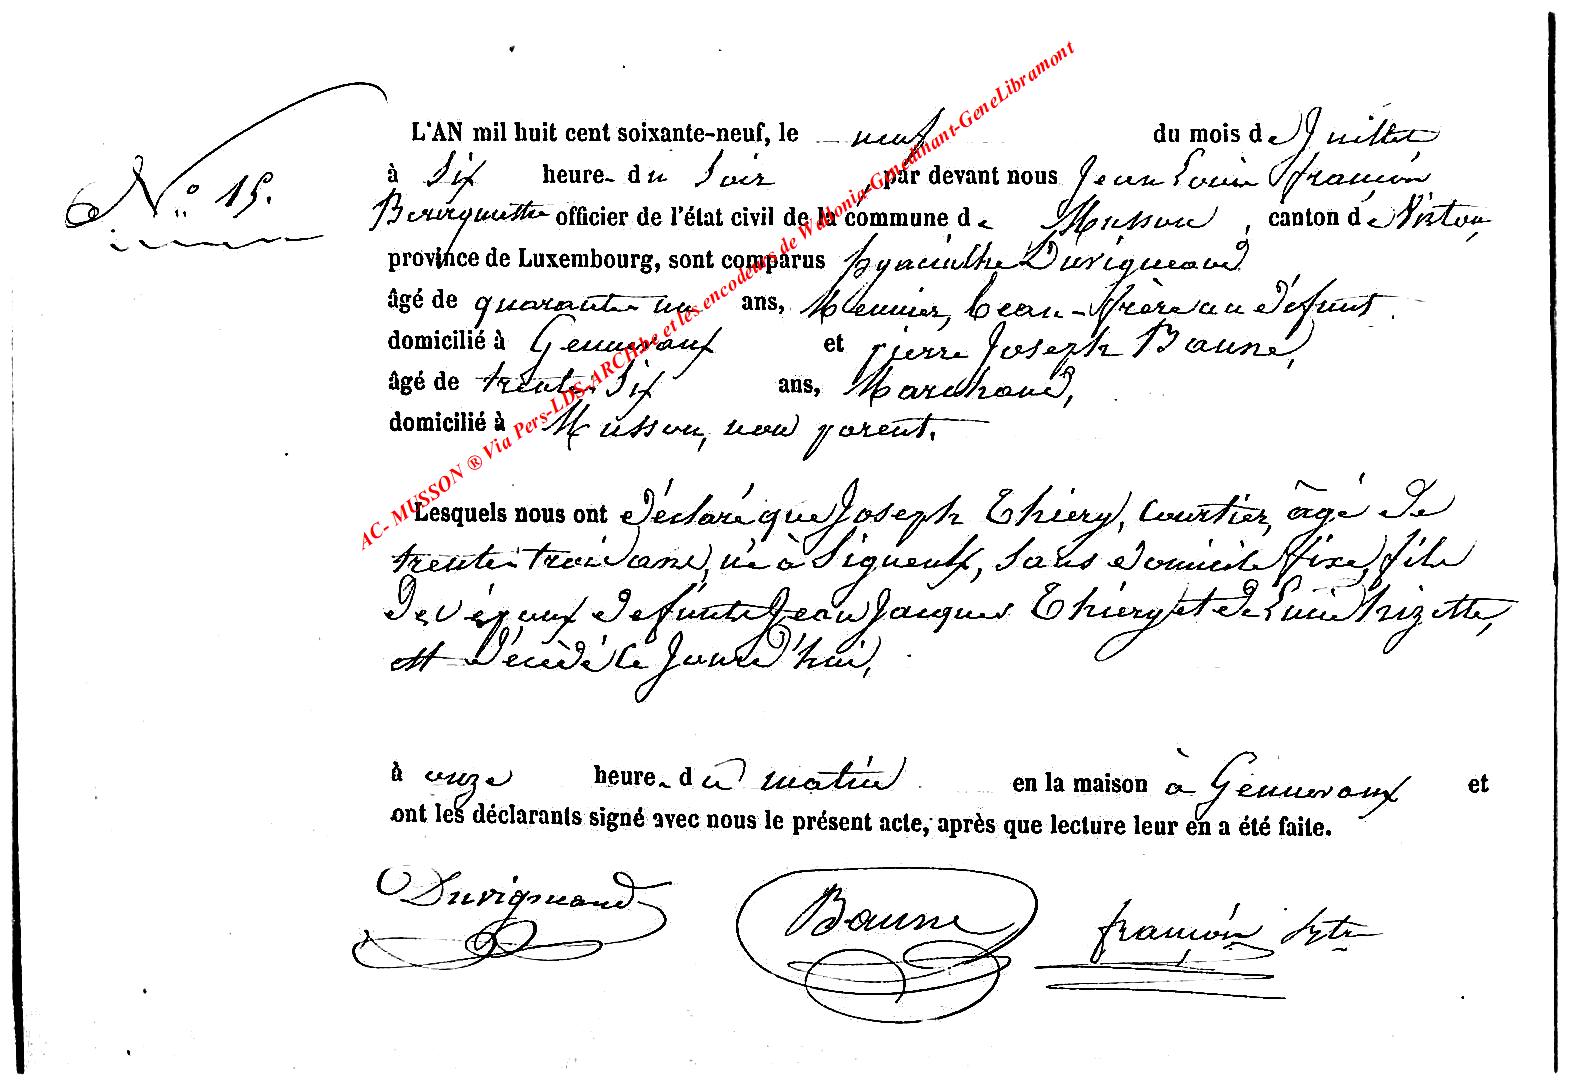 N.° 15.
L'AN mil huit cent soixante-neuf, le neuf du mois de Juillet
à Six heure du Soir par devant nous Jean Louis françois
officier de l'état civil de la commune de Musson, canton de Virton,
province de Luxembourg, sont comparus hyacinthe Duvigneaud
âgé de quarante un ans, Meunier, beau-frère au défunt
domicilié à Gennevaux et pierre Joseph Bauné,
âgé de trente Six ans, Marchand,
domicilié à Musson, non parent.
Lesquels nous ont déclaré que Joseph Thiery, Courtier, âgé de
trente trois ans, né à Signeulx, Sans domicile fixe, fils
des époux defunts Jean Jacques Thiery et de Lucie hizette,
est décédé ce Jourd'hui,
à onze heure du matin en la maison à Gennevaux et
ont les déclarants signé avec nous le présent acte, après que lecture leur en a été faite.
Duvigneaud Baune françois
AC- MUSSON ® Via Pers-LDS-ARCH.be et les encodeurs de Wallonia-Genedinant-GeneLibramont